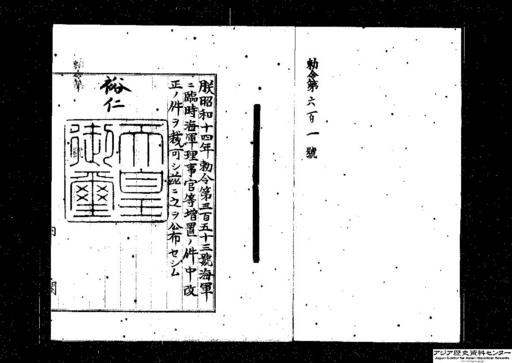 勅令第六百一號
朕昭和十四年勅令第三百五十三號海軍
ニ臨時海軍理事官等増置ノ件中改
正ノ件ヲ裁可シ茲ニ之ヲ公布セシム
裕仁
天皇
御璽
内 閣
アジア歴史資料センター
Japan Center for Asian Historical Records